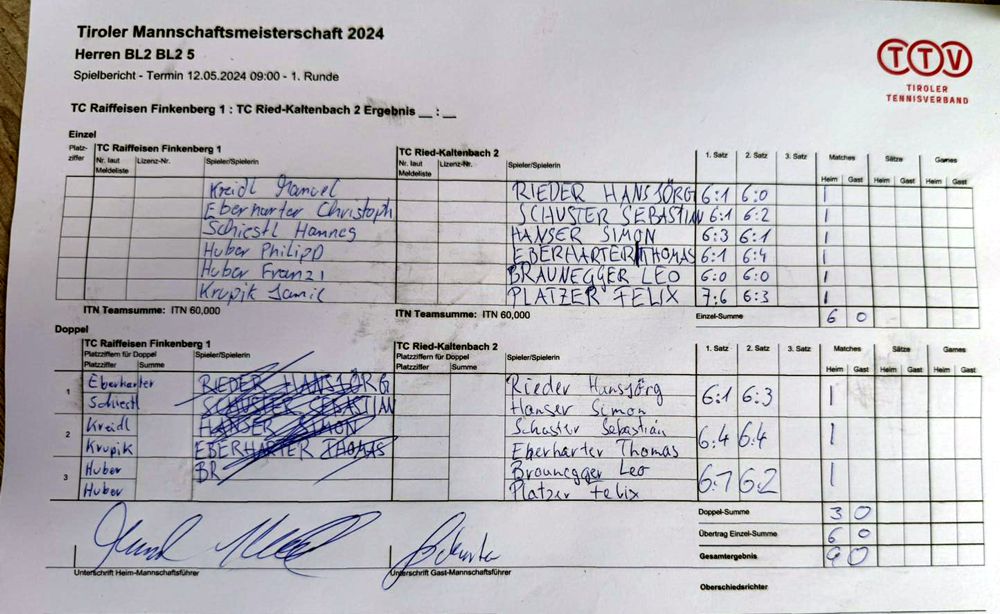 Tiroler Mannschaftsmeisterschaft 2024
Herren BL2 BL2 5
Spielbericht - Termin 12.05.2024 09:00 - 1. Runde
TTV
TIROLER
TENNISVERBAND
TC Raiffeisen Finkenberg 1 : TC Ried-Kaltenbach 2 Ergebnis __ : __
Einzel
Platz-ziffer TC Raiffeisen Finkenberg 1 TC Ried-Kaltenbach 2 1. Satz 2. Satz 3. Satz Matches Sätze Games
Nr. laut Meldeliste Lizenz-Nr. Spieler/Spielerin Nr. laut Meldeliste Lizenz-Nr. Spieler/Spielerin Heim Gast Heim Gast Heim Gast
Kreidl Manuel RIEDER HANSJÖRG 6:1 6:0 1
Eberharter Christoph SCHUSTER SEBASTIAN 6:1 6:2 1
Schiestl Hannes HANSER SIMON 6:3 6:1 1
Huber Philipp EBERHARTER THOMAS 6:1 6:4 1
Huber Franzi BRAUNEGGER LEO 6:0 6:0 1
Krupik Jamie PLATZER FELIX 7:6 6:3 1
ITN Teamsumme: ITN 60,000 ITN Teamsumme: ITN 60,000 Einzel-Summe 6 0
Doppel
TC Raiffeisen Finkenberg 1 TC Ried-Kaltenbach 2 1. Satz 2. Satz 3. Satz Matches Sätze Games
Platzziffern für Doppel Spieler/Spielerin Platzziffern für Doppel Spieler/Spielerin
Platzziffer Summe Platzziffer Summe Heim Gast Heim Gast Heim Gast
1 Eberharter RIEDER HANSJÖRG Rieder Hansjörg 6:1 6:3 1
Schiestl SCHUSTER SEBASTIAN Hanser Simon
2 Kreidl HANSER SIMON Schuster Sebastian 6:4 6:4 1
Krupik EBERHARTER THOMAS Eberharter Thomas
3 Huber BR Braunegger Leo 6:7 6:2 1
Huber Platzer Felix
Doppel-Summe 3 0
Übertrag Einzel-Summe 6 0
Gesamtergebnis 9 0
Unterschrift Heim-Mannschaftsführer Unterschrift Gast-Mannschaftsführer
Oberschiedsrichter